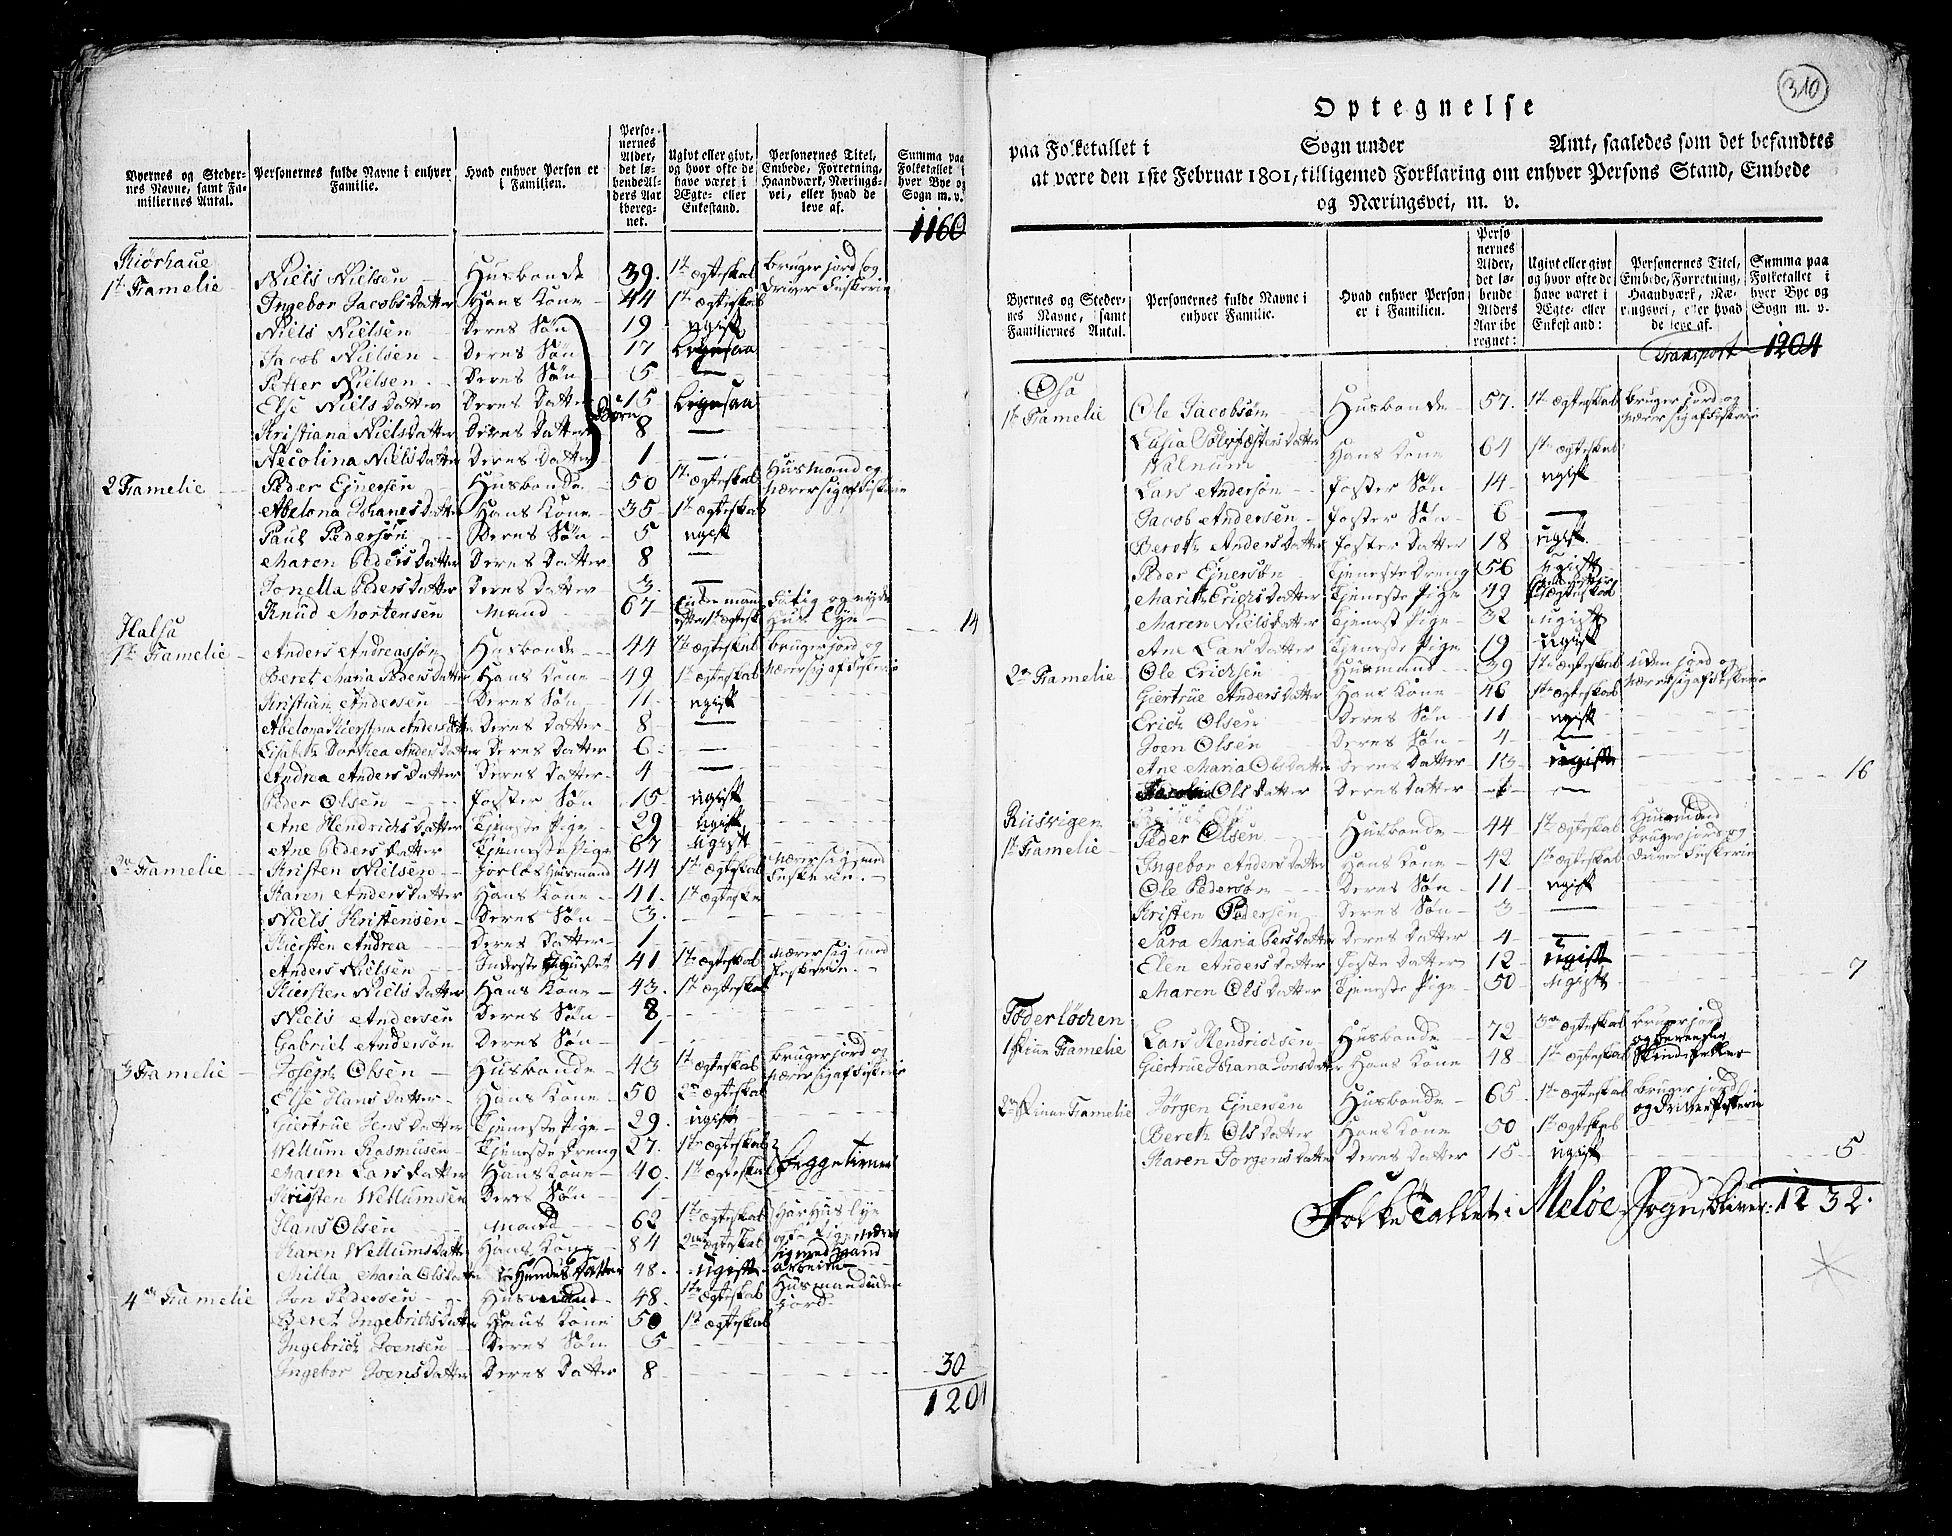 Byernes og Steder-
nes Navne, samt Fa-
miliernes Antal.
Personernes fulde Navne i enhver
Familie.
Hvad enhver Person er
i Familien.
Perso-
nernes
Alder,
det lø-
bende Al-
ders Aar
ibereg-
net.
Ugivt eller givt,
og hvor ofte de
have været i
Ægte- eller
Enkestand.
Personernes Titel,
Embede, Forretning,
Haandværk, Nærings-
vei, eller hvad de
leve af.
Summa paa
Folketallet i
hver Bye og
Sogn m. v.
1160
Kiørhaue
1te Familie Niels Nielsen Husbonde 39. 1te ægteskab bruger jord og driver fiskerie
Ingebor Jacobs Datter Hans Kone 44 1te ægteskab
Niels Nielsen Deres Søn 19 ugift
Jacob Nielsen Deres Søn 17
Petter Nielsen Deres Søn 5
Else Niels Datter Deres Datter 15
Kristiana Niels Datter Deres Datter 8
Necolina Niels Datter Deres Datter 1
2 Familie Peder Ejnersen Husbonde 50 1te ægteskab Husmand og nærer sig af fiskerie
Abelona Johanes Datter Hans Kone 35 1te ægteskab
Paul Pedersøn Deres Søn 5 ugift
Maren Peders Datter Deres Datter 8
Jonella Peders Datter Deres Datter 3
Knud Mortensen Mand 67 Enkemand efter 1te ægtesk. Fatig og nyder Hus Lye 14
Halsa
1te Familie Anders Andreassøn Husbonde 44 1te ægteskab bruger jord og nærer sig af fiskerie
Beret Maria Peders Datter Hans Kone 49 1te ægteskab
Kristian Andersen Deres Søn 11 ugift
Abelona Kierstina Anders Dtr Deres Datter 8
Lisabeth Dorthea Anders Datter Deres Datter 6
Andrea Anders Datter Deres Datter 4
Peder Olsen Foster Søn 15 ugift
Ane Hendrichs Datter Tjeneste Pige 29 ugift
Ane Peders Datter Tjeneste Pige 67 ugift
2de Familie Kristen Nielsen Jorløs Husmand 44 1te ægteskab nærer sig med Fiskerie
Karen Anders Datter Hans Kone 41 1te ægteska
Niels Kristensen Deres Søn 3.
Kiersten Andrea Deres Datter 1
Anders Nielsen Inderste 41 1te ægteskab nærer sig med Feskerie
Kiersten Niels Datter Hans Kone 43. 1te ægteskab
Niels Andersen Deres Søn 8
Gabriel Andersøn Deres Søn 1
3 Familie Joseph Olsen Husbonde 43 1te ægteskab bruger jord og nærer sig af fiskerie
Else Hans Datter Hans Kone 50 2de ægteskab
Giertrue Jens Datter Tjeneste Pige 29. ugift
Wellum Rasmusen Tjeneste Dreng 27. 1te ægteskab
Maren Lars Datter Hans Kone 40. 1te ægteskab begge tiener
Kristen Wellumsen Deres Søn 1
Hans Olsen Mand 62 1te ægteskab Har Hus Lye
Karen Wellums Datter Hans Kone 84 2det ægteskab
Milla Maria Ols Datter Hendes Datter 48. ugift arbeide
4de Familie Jon Pedersen Husmand 48. 1te ægteskab Husmand uden jord.
Beret Ingebrichs Datter Hans Kone 50 1te ægteskab
Ingebrich Joensen Deres Søn 5
Ingebor Joens Datter Deres Datter 8 30
1204
310
Optegnelse
paa Folketallet i Sogn under Amt, saaledes som det befandtes
at være den 1ste Februar 1801, tilligemed Forklaring om enhver Persons Stand, Embede
og Næringsvei, m. v.
Byernes og Steder-
nes Navne, samt
Familiernes Antal.
Personernes fulde Navne i
enhver Familie.
Hvad enhver Person
er i Familien.
Perso
nernes
Alder,
det lø-
bende
Alders
Aar ibe
regnet:
Ugivt eller givt
og hvor ofte de
have været i
Ægte- eller
Enkestand:
Personernes Titel,
Embede, Forretning,
Haandværk, Næ-
ringsvei, eller hvad
de leve af.
Summa paa
Folketallet i
hver Bye og
Sogn m. v.
Transport 1204
Osa
1te Familie Ole Jacobsøn Husbonde 57. 1te ægteskab bruger jord og nærer sig af fiskerie
Walnum Hans Kone 64 1te ægteskab
Lars Andersøn Foster Søn 14 ugift
Jacob Andersen Foster Søn 6
Bereth Anders Datter Foster Datter 18 ugift
Peder Ejnersøn Tjeneste Dreng 56 ugift
Marith Erichs Datter Tjeneste Pige 49
Maren Niels Datter Tjenest Pige 32 ugift
Ane Lars Datter Tjeneste Pige 19 ugift
2de Familie Ole Erichsen Husmand 39 1te ægteskab uden jord og nærer sig af fiskerie
Giertrue Anders Datter Hans Kone 46 1te ægteskab
Erich Olsen Deres Søn 11 ugift
Joen Olsen Deres Søn 4
Ane Maria Ols Datter Deres Datter 13 ugift
Ols Datter Deres Datter 1 16
Riisvigen
1te Familie Peder Olsen Husbonde 44 1te ægteskab Husmand bruger jord og driver fiskerie
Ingebor Anders Datter Hans Kone 42 1te ægteskab
Ole Pedersøn Deres Søn 11 ugift
Kristen Pedersen Deres Søn 3
Sara Maria Pers Datter Deres Datter 4
Elen Anders Datter Foste Datter 12 ugift
Maren Ols Datter Tjeneste Pige 50 ugift 7
Lars Hendrichsen Husbonde 72 3die ægteskab bruger jord
1 Familie Giertrue Johana Jons Datter Hans Kone 48 1te ægteskab
2de Familie Jørgen Ejnersen Husbonde 65 1te ægteskab bruger jord og driver fiskerie
Bereth Ols Datter Hans Kone 50 1te ægteskab
Karen Jørgens Datter Deres Datter 15 ugift 5
Folke Tallet i Meløe Sogn bliver: 1232.